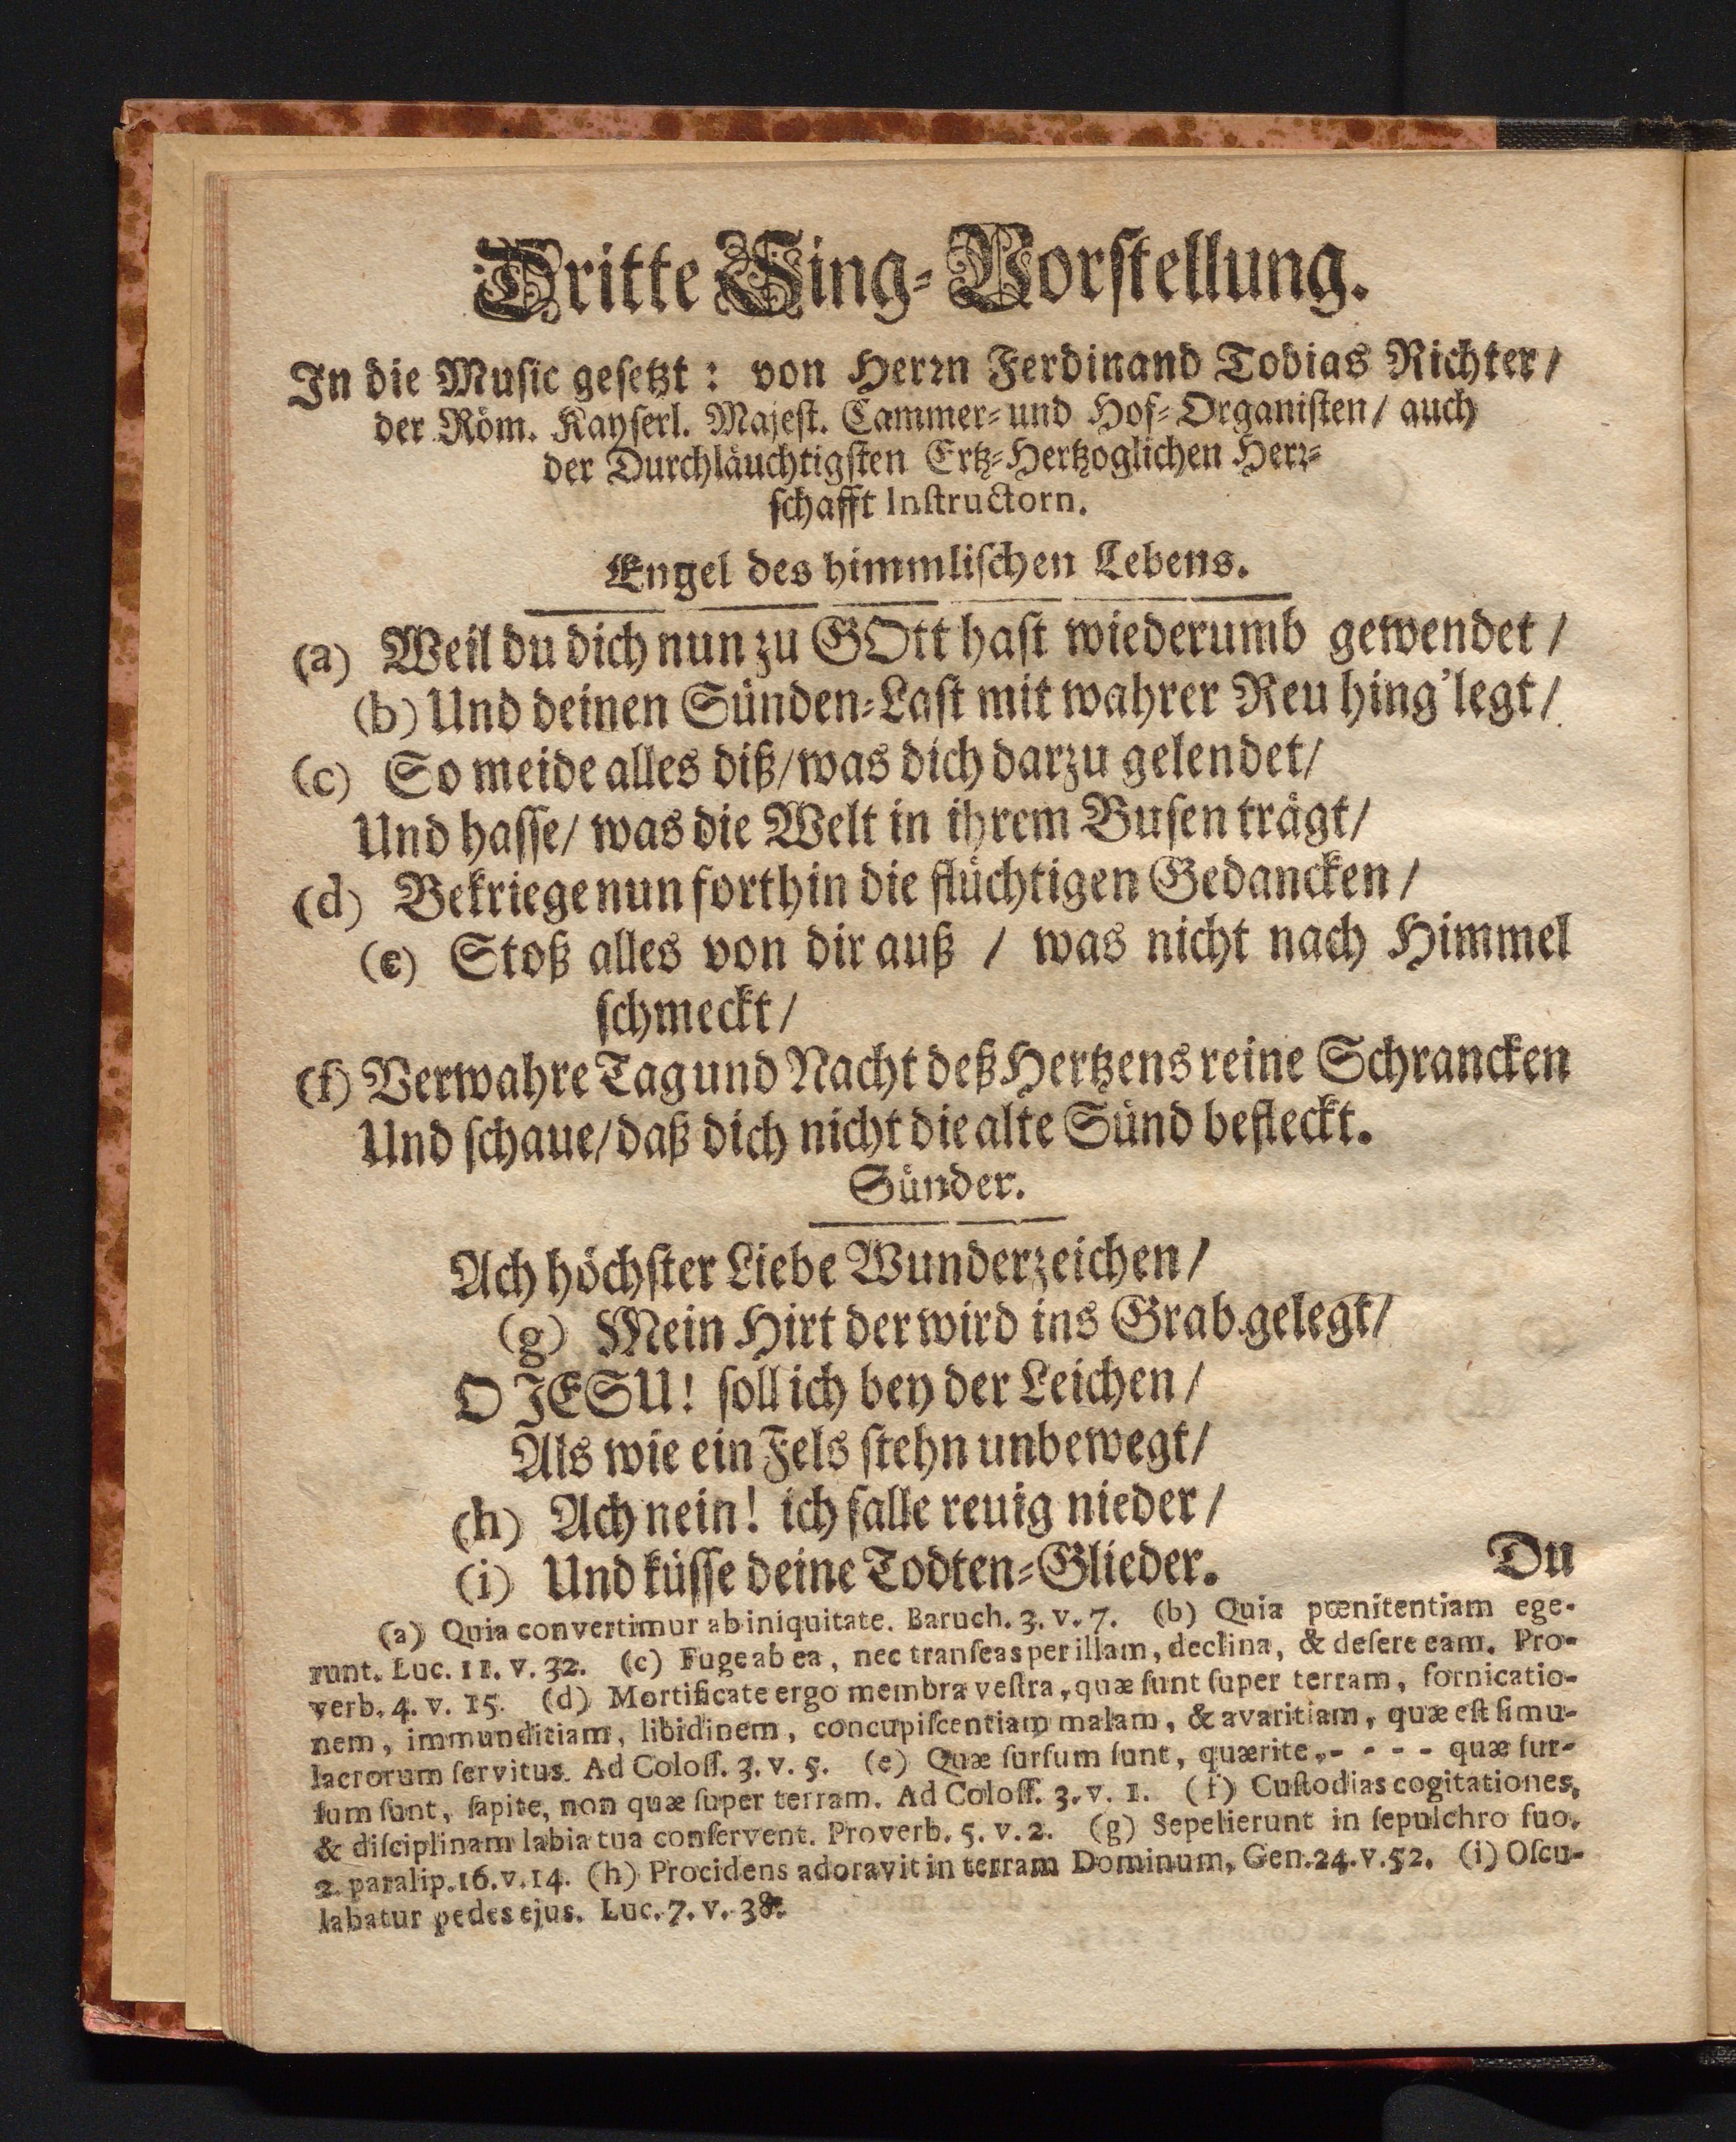 Dritte Sing-Vorstellung.
In die Music gesetzt: von Herrn Ferdinand Tobias Richter/
der Röm. Kayserl. Majest. Cammer- und Hof-Organisten/ auch
der Durchläuchtigsten Ertz-Hertzoglichen Herr-
schafft Instructorn.
Engel des himmlischen Lebens.
(a) Weil du dich nun zu GOtt hast wiederumb gewendet /
(b) Und deinen Sünden-Last mit wahrer Reu hing'legt/
(c) So meide alles diß/ was dich darzu gelendet/
Und hasse/ was die Welt in ihrem Busen trägt/
(d) Bekriege nun forthin die flüchtigen Gedancken /
(e) Stoß alles von dir auß / was nicht nach Himmel
schmeckt/
(f) Verwahre Tag und Nacht deß Hertzens reine Schrancken
Und schaue/ daß dich nicht die alte Sünd befleckt.
Sünder.
Ach höchster Liebe Wunderzeichen/
(g) Mein Hirt der wird ins Grab gelegt/
O JESU! soll ich bey der Leichen/
Als wie ein Fels stehn unbewegt/
(h) Ach nein! ich falle reuig nieder/
(i) Und küsse deine Todten-Glieder.
Du
(a) Quia convertimur ab iniquitate. Baruch. 3. v. 7. (b) Quia pœnitentiam ege-
runt. Luc. 11. v. 32. (c) Fuge ab ea, nec transeas per illam, declina, & desere eam. Pro-
verb. 4. v. 15. (d) Mortificate ergo membra vestra, quæ sunt super terram, fornicatio-
nem, immunditiam, libidinem, concupiscentiam malam, & avaritiam, quæ est simu-
lacrorum servitus. Ad Coloss. 3. v. 5. (e) Quæ sursum sunt, quærite, - - - - quæ sur-
sum sunt, sapite, non quæ super terram. Ad Coloss. 3. v. 1. (f) Custodias cogitationes,
& disciplinam labia tua conservent. Proverb. 5. v. 2. (g) Sepelierunt in sepulchro suo.
2. paralip. 16. v. 14. (h) Procidens adoravit in terram Dominum, Gen. 24. v. 52. (i) Oscu-
labatur pedes ejus. Luc. 7. v. 38.